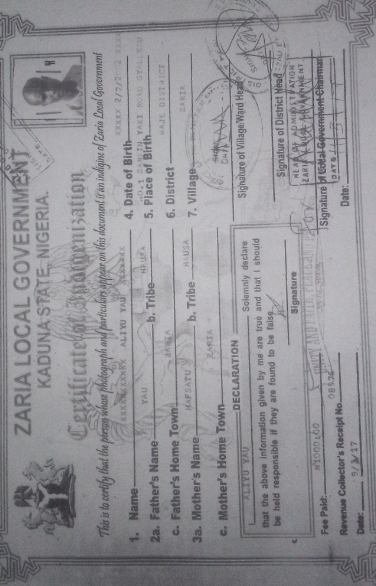 ZARIA LOCAL GOVERNMENT
KADUNA STATE, NIGERIA.
Certificate of Indigenization
This is to certify that the person whose photograph and particulars appear on this document if an indigene of Zaria Local Government
1. Name ALIYU YAU
4. Date of Birth
2a. Father's Name YAU b. Tribe HAUSA
5. Place of Birth
c. Father's Home Town ZARIA
6. District DISTRICT
3a. Mother's Name HAFSATU b. Tribe HAUSA
7. Village ZARIA
c. Mother's Home Town ZARIA
DECLARATION
I, ALIYU YAU Solemnly declare
that the above information given by me are true and that I should
be held responsible if they are found to be false
Signature
Signature of Village/Ward Head
Signature of District Head
HEAD OF ADMINISTRATION
ZARIA LOCAL GOVERNMENT
Signature of Local Government Chairman
DATE
Fee Paid:
Revenue Collector's Receipt No
Date: 9/8/17
Date: